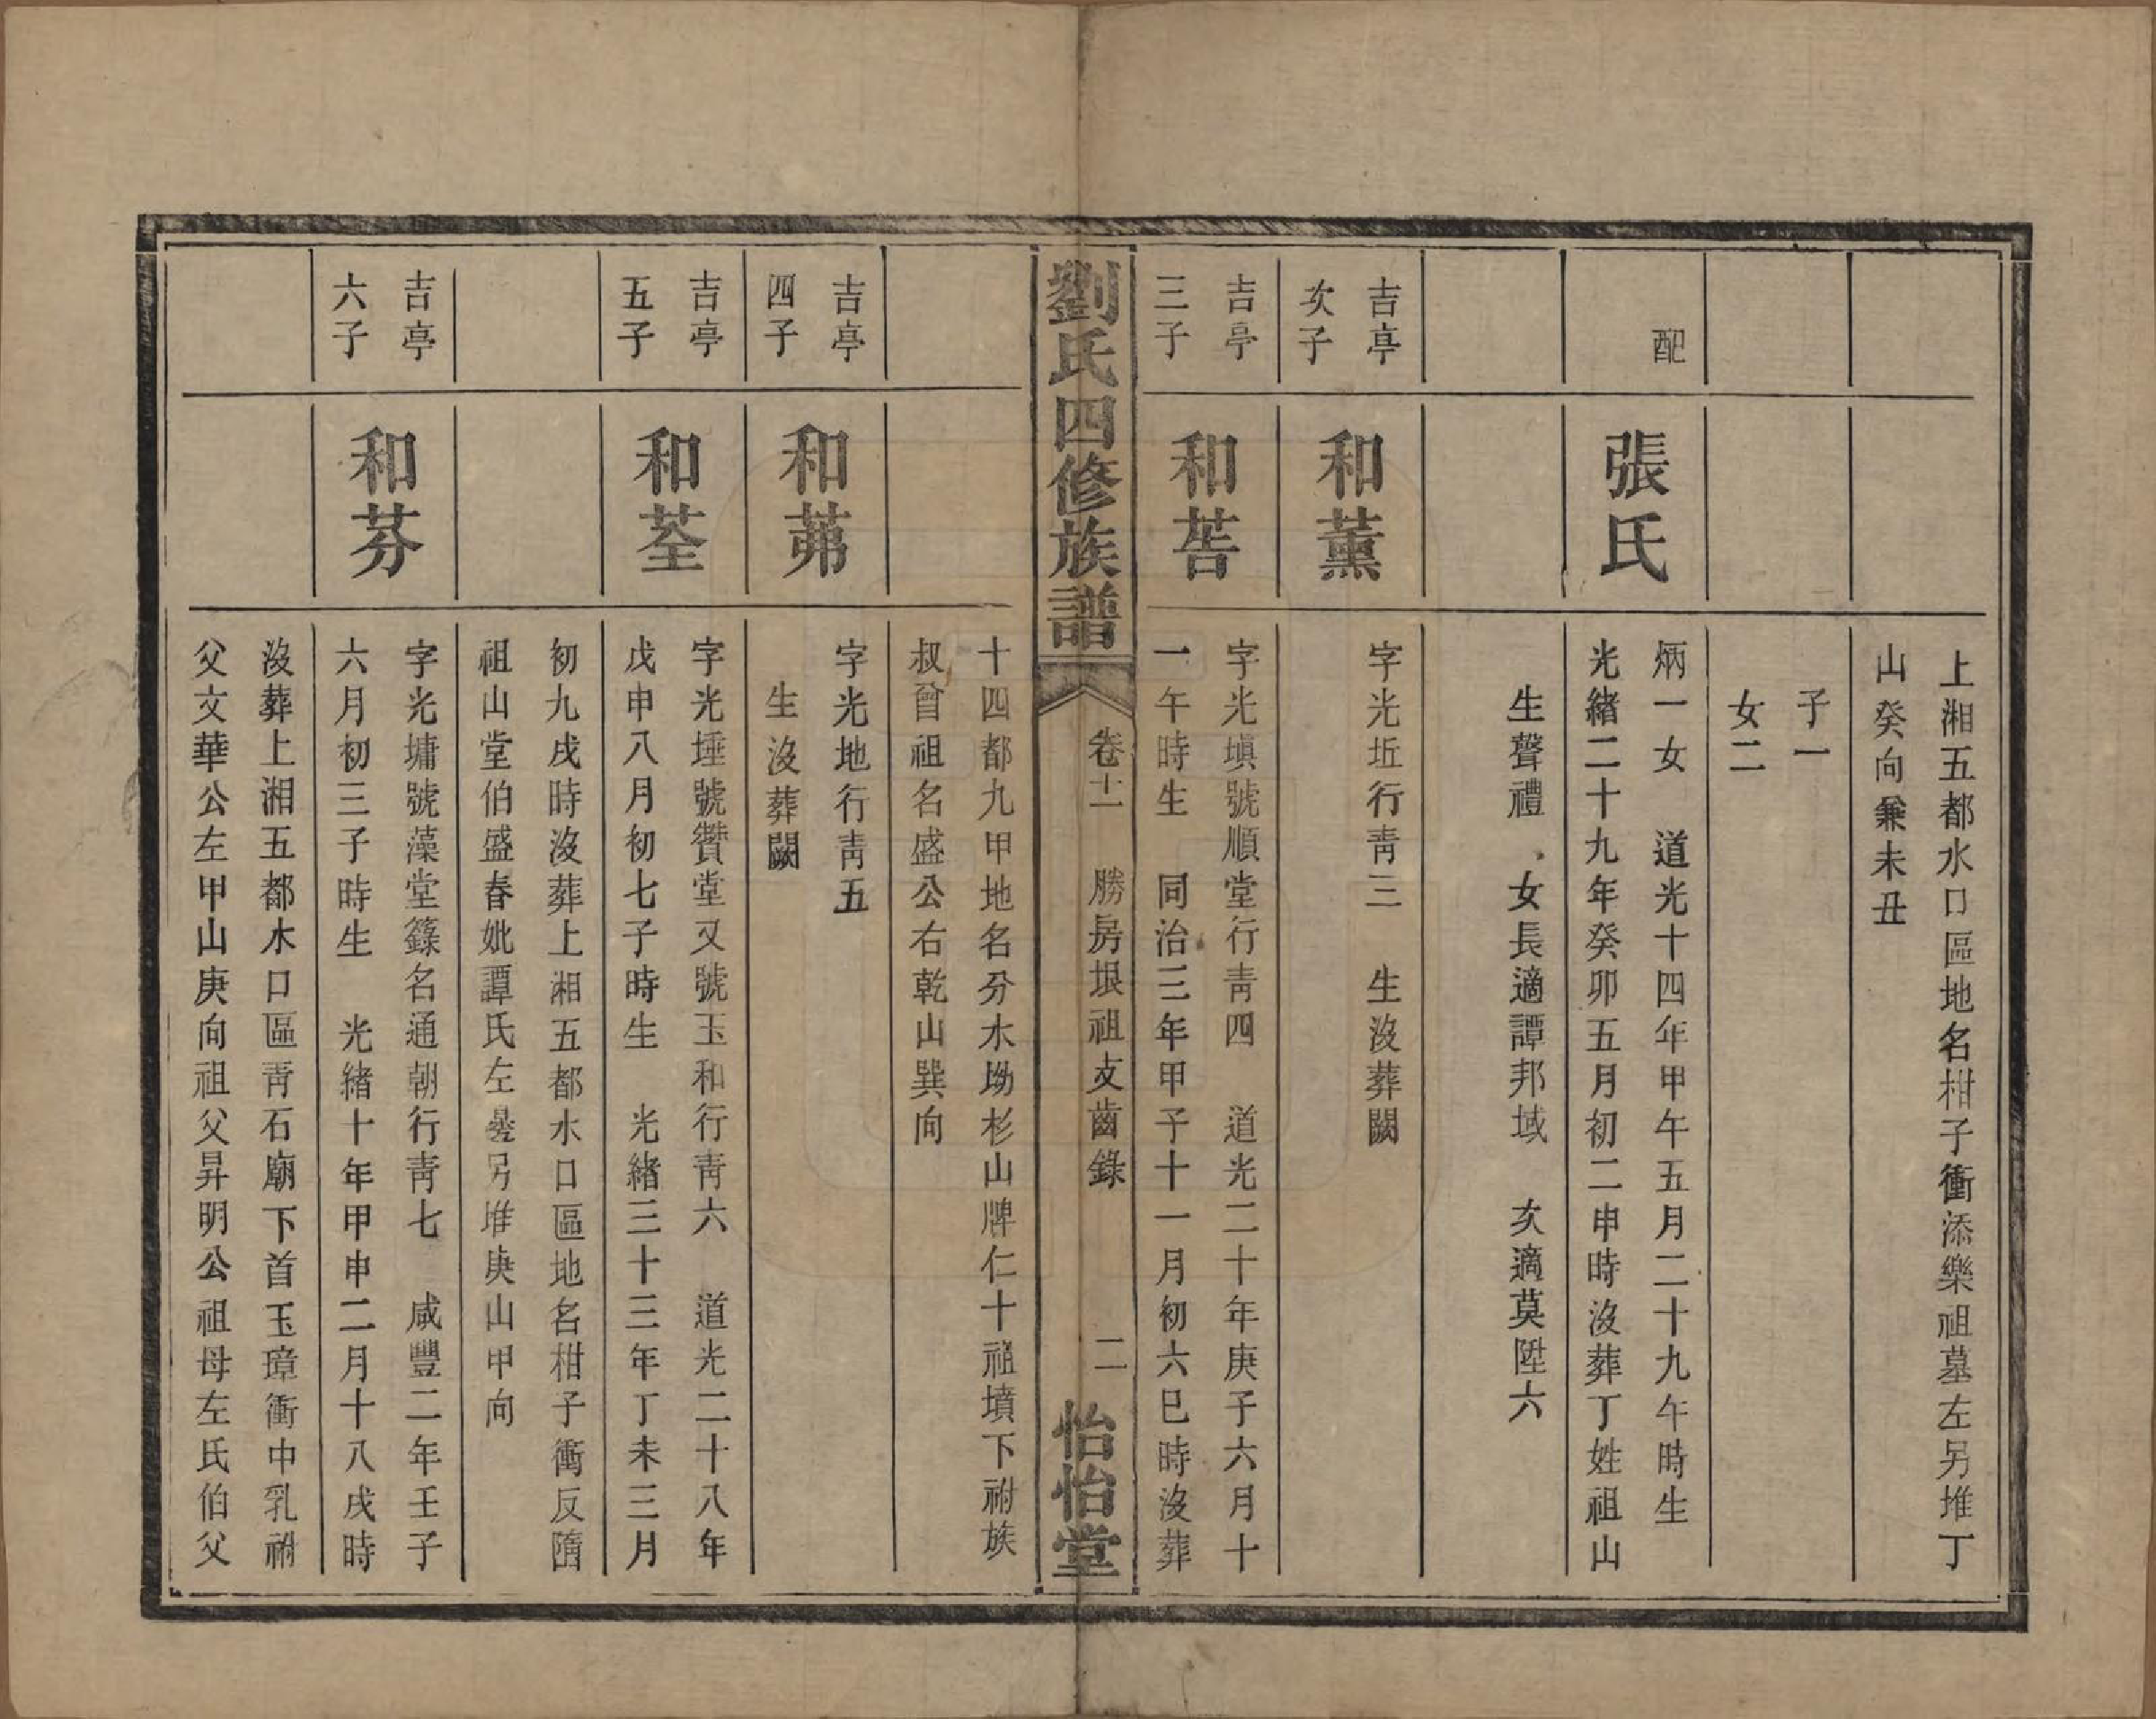 上湘五都水口區地名柑子衝添樂祖墓左另堆丁
山癸向兼未丑
子一
女二
配
張氏
炳一女　道光十四年甲午五月二十九午時生
光緒二十九年癸卯五月初二申時沒葬丁姓祖山
生聲禮　女長適譚邦域　次適莫陞六
吉亭
次子
和薰
字光坵行靑三　生沒葬闕
吉亭
三子
和莟
字光塡號順堂行靑四　道光二十年庚子六月十
一午時生　同治三年甲子十一月初六巳時沒葬
劉氏四修族譜
卷十二　勝房垠祖支齒錄
二
怡怡堂
十四都九甲地名分水坳杉山牌仁十祖墳下祔族
叔曾祖名盛公右乾山巽向
吉亭
四子
和茀
字光地行靑五
生沒葬闕
吉亭
五子
和荃
字光埵號贊堂又號玉和行靑六　道光二十八年
戊申八月初七子時生　光緒三十三年丁未三月
初九戌時沒葬上湘五都水口區地名柑子衝反隋
祖山堂伯盛春妣譚氏左塋另堆庚山甲向
吉亭
六子
和芬
字光墉號藻堂籙名通朝行靑七　咸豐二年壬子
六月初三子時生　光緒十年甲申二月十八戌時
沒葬上湘五都水口區靑石廟下首玉璋衝中乳祔
父文華公左甲山庚向祖父昇明公祖母左氏伯父